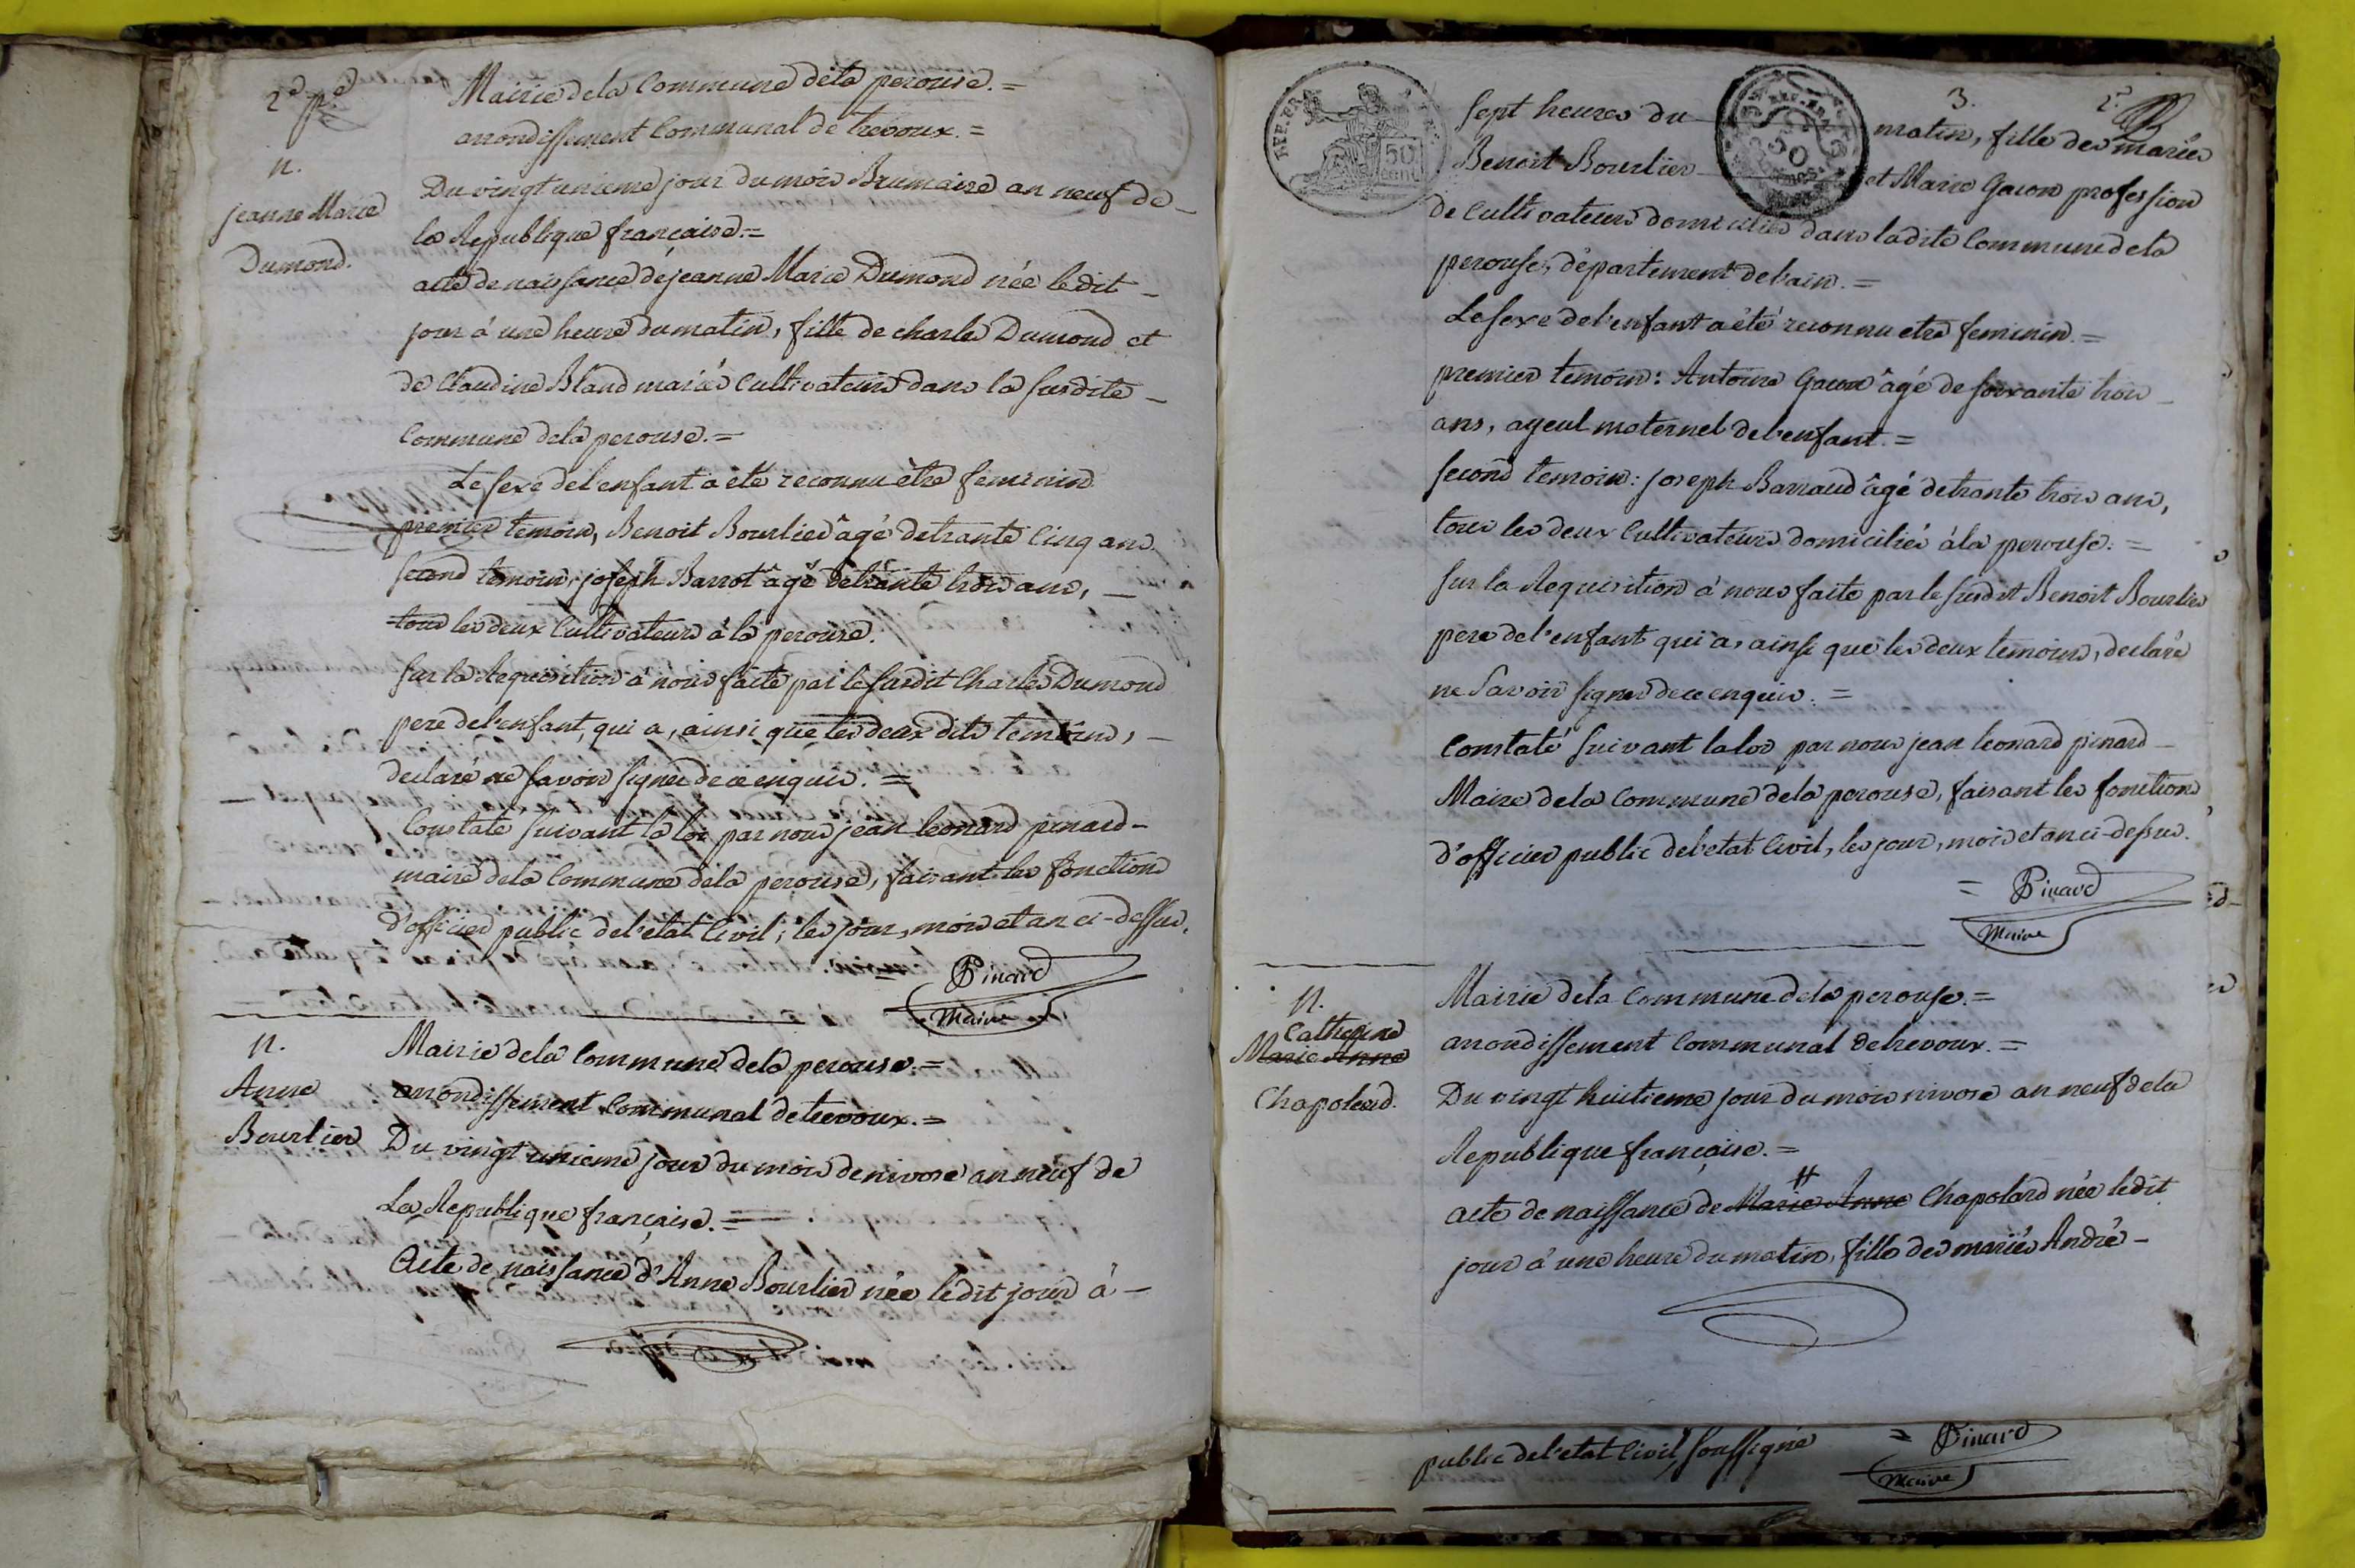 2e pe
Mairie de la Commune de la perouse. =
arrondissement Communal de trevoux. =
N.
jeanne Marie
Dumond.
Du vingt unieme jour du mois Brumaire an neuf de -
la Republique française. =
acte de naissance de jeanne Marie Dumond née ledit -
jour à une heure du matin, fille de charles Dumond et
de Claudine Bland mariés Cultivateurs dans la susdite -
Commune de la perouse. =
Le sexe de l'enfant a été reconnu être feminin
premier temoin, Benoit Bourlier âgé de trante Cinq ans.
second temoin, joseph Barrot âgé de trante trois ans, -
tous les deux Cultivateurs à la perouse.
sur la Requisition à nous faite par le susdit Charles Dumond
pere de l'enfant, qui a, ainsi que les deux dits temoins, -
declaré ne savoir signer de ce enquis. =
Constaté suivant la loi par nous jean leonard pinard -
maire de la Commune de la perouse, faisant les fonctions
d'officier public de l'etat Civil, les jour, mois et an ci-dessus.
Pinard
Maire
N.
Anne
Bourlier
Mairie de la Commune de la perouse. =
arrondissement Communal de trevoux. =
Du vingt unieme jour du mois de nivose an neuf de
La Republique française. =
Acte de naissance d'Anne Bourlier née ledit jour à -
3.
REP. FRA.
50
cent
50
sept heures du matin, fille des mariés
Benoit Bourlier et Marie Gacon profession
de Cultivateurs domiciliés dans ladite Commune de la
perouse, département de l'ain. =
Le sexe de l'enfant a été reconnu etre feminin. =
premier temoin: Antoine Gacon âgé de soixante trois -
ans, ayeul maternel de l'enfant. =
second temoin: joseph Barraud âgé de trante trois ans,
tous les deux Cultivateurs domiciliés à la perouse. =
sur la Requisition à nous faite par le susdit Benoit Bourlier
pere de l'enfant qui a, ainsi que les deux temoins, declaré
ne savoir signer de ce enquis. =
Constaté suivant la loi par nous jean leonard pinard -
Maire de la Commune de la perouse, faisant les fonctions
d'officier public de l'etat Civil, les jour, mois et an ci-dessus.
= Pinard
Maire
N.
Catherine
Marie Anne
Chapolard.
Mairie de la Commune de la perouse. =
arrondissement Communal de trevoux. =
Du vingt huitieme jour du mois nivose an neuf de la
Republique française. =
acte de naissance de Marie Anne Chapolard née ledit
jour à une heure du matin, fille des mariés André -
public de l'etat Civil, soussigné = Pinard
Maire